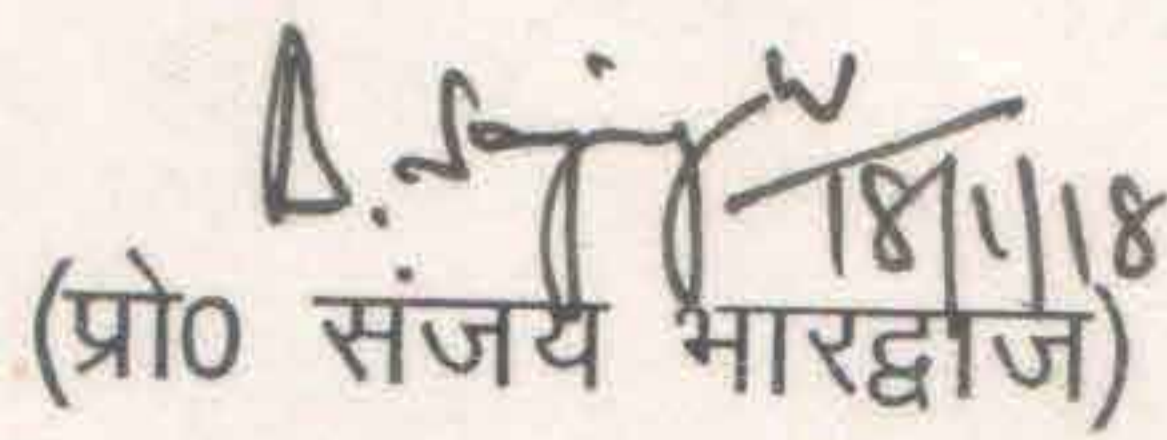 18/1/18
(प्रो० संजय भारद्वाज)